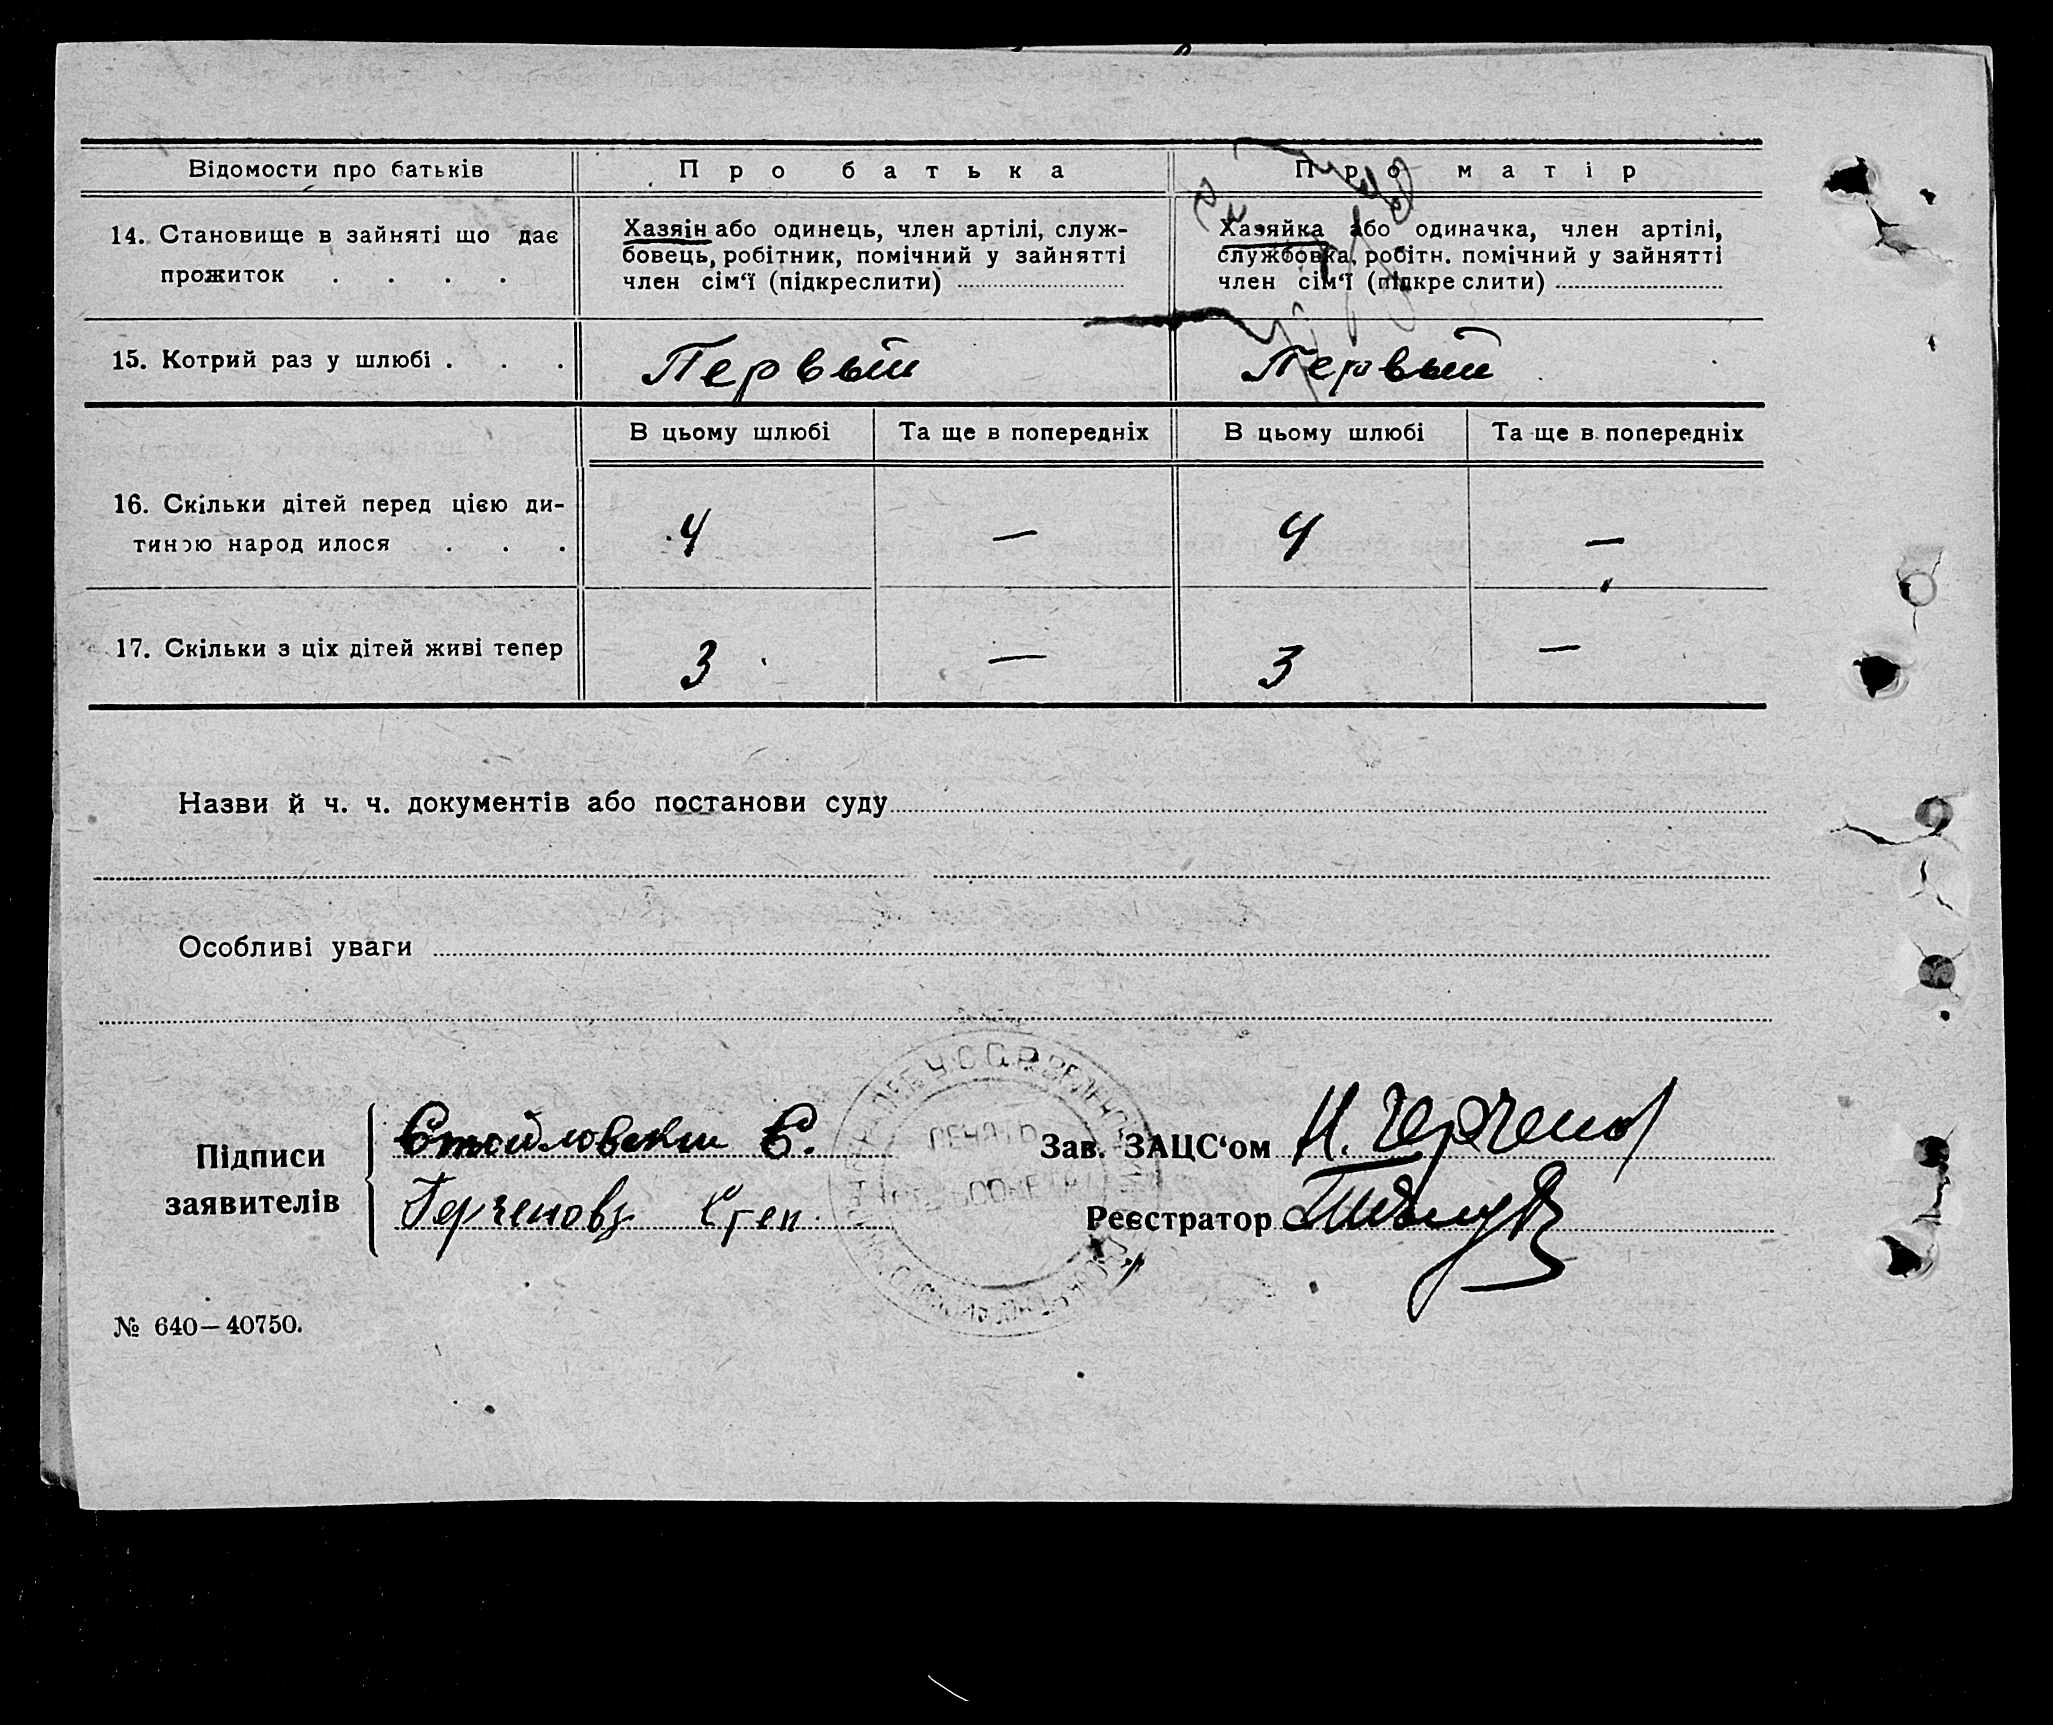 Відомости про батьків
Про батька
Про матір
14. Становище в зайняті що дає
прожиток . . . .
Хазяїн або одинець, член артілі, служ-
бовець, робітник, помічний у зайнятті
член сім‘ї (підкреслити)
Хазяйка або одиначка, член артілі,
службовка, робітн. помічний у зайнятті
член сім‘ї (підкреслити)
15. Котрий раз у шлюбі . . .
Первый
Первый
В цьому шлюбі
Та ще в попередніх
В цьому шлюбі
Та ще в попередніх
16. Скільки дітей перед цією ди-
тиною народилося . . .
4
—
4
—
17. Скільки з ціх дітей живі тепер
3
—
3
—
Назви й ч. ч. документів або постанови суду
Особливі уваги
У.С.С.Р.
ПЕЧАТЬ
Підписи
заявителів
Стойловский С.
Герченовъ Степ.
Зав. ЗАЦС‘ом
Реєстратор
№ 640—40750.